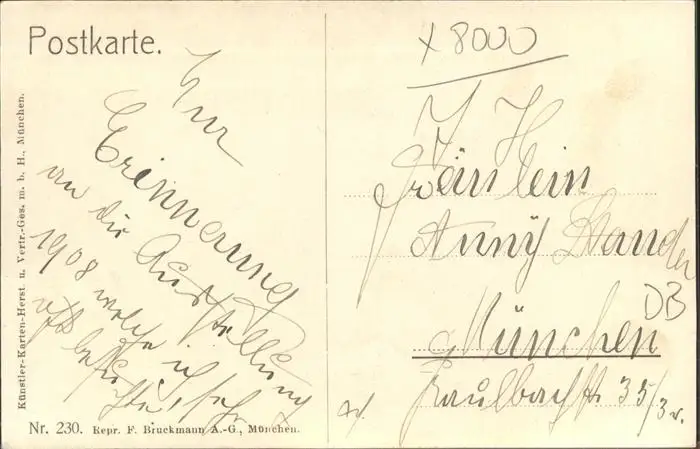 Postkarte.
Zur
Erinnerung
an die Ausstellung
1908 welche ich sehr
oft besuchte!
Künstler-Karten-Herst. u. Vertr.-Ges. m. b. H., München.
Nr. 230. Repr. F. Bruckmann A.-G., München.
x 8000
Fräulein
Anny Stander
München
DB
Kaulbachst 35/3 r.